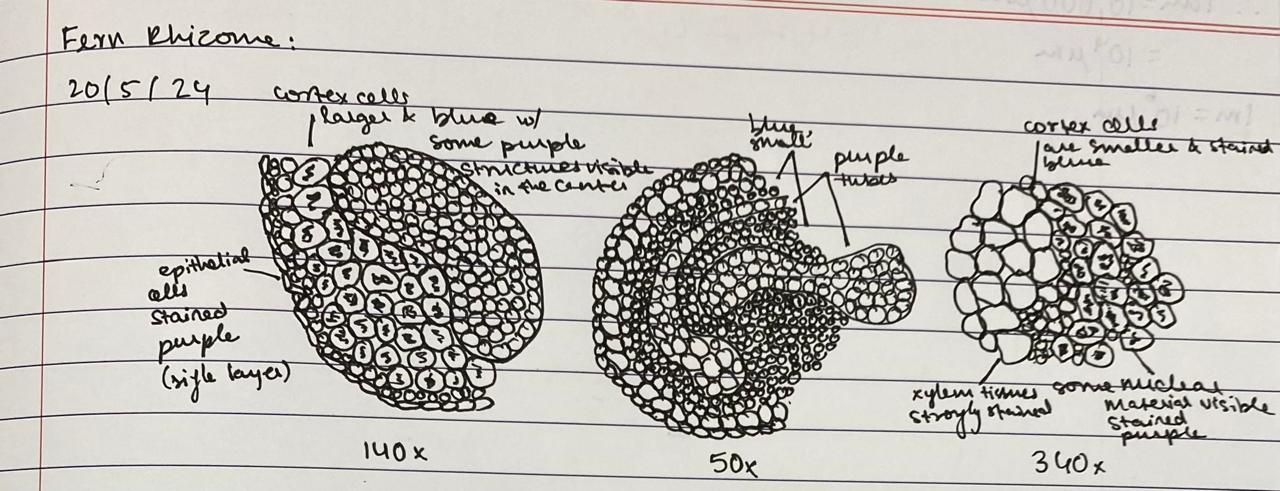 Fern Rhizome:
20/5/24
cortex cells
larger & blue w/
some purple
structures visible
in the center
epithelial
cells
stained
purple
(single layer)
140x
blue,
small
purple
tubes
50x
cortex cells
are smaller & stained
blue
xylem tissues
strongly stained
some nuclear
material visible
stained
purple
340x